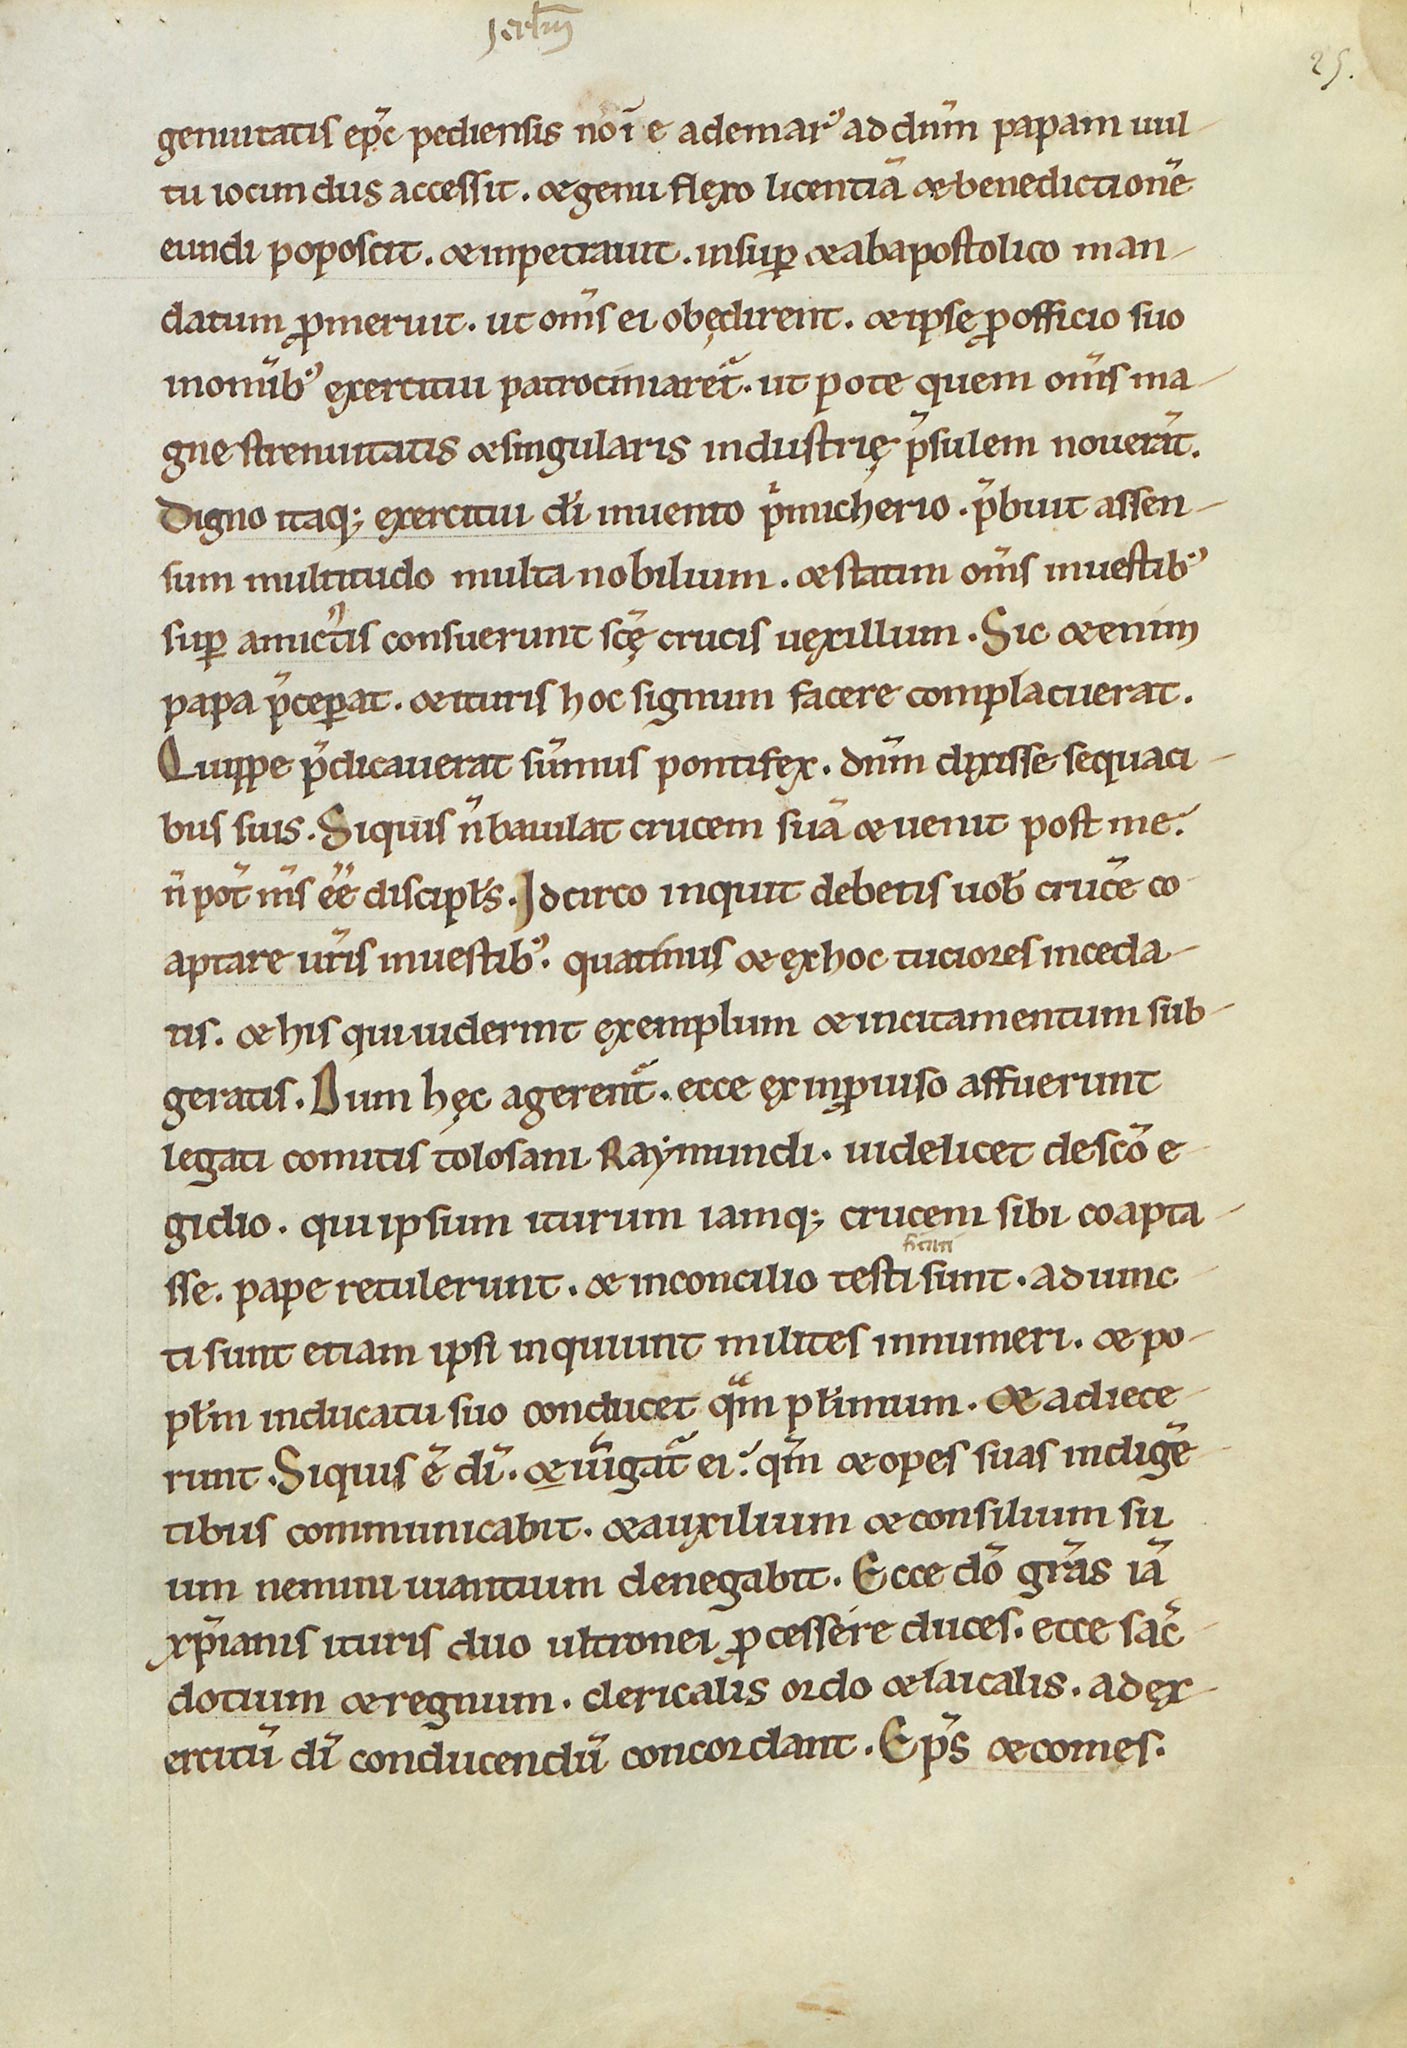 Ierlm̄
25.
genuitatis ep̄c pediensis nōi ē ademar᾿ ad dūm papam uul-
tu iocundus accessit. & genu flexo licentiā & benedictionē
eundi poposcit. & inpetrauit. insup̄ & ab apostolico man-
datum ꝓmeruit. ut om̄s ei obędirent. & ipsę ꝓ officio suo
in omīb᾿ exercitui patrociniaret᷑. ut pote quem om̄s ma-
gne strenuitatis & singularis industrię p̄sulem nouerāt.
Digno itaq; exercitui dī inuento p̄micherio. p̄buit assen-
sum multitudo multa nobilium. & statim om̄s in uestib᾿
sup̄ amictis consuerunt scę̄ crucis uexillum. Sic & enim
papa p̄ceꝑat. & ituris hoc signum facere complacuerat.
Quippe p̄dicauerat sūmus pontifex. dn̄m dixisse sequaci-
bus suis. Siquis n̄ baiulat crucem suā & uenit post me.
n̄ pot̄ m̄s eē discipl̄s. Idcirco inquit debetis uob̄ crucē co-
aptare ur̄is in uestib᾿. quatinus & ex hoc tuciores inceda-
tis. & his qui uiderint exemplum & incitamentum sub-
geratis. Dum hęc agerent᷑. ecce ex inꝓuiso affuerunt
legati comitis tolosani Raymundi. uidelicet de scō e-
gidio. qui ipsum iturum iamq; crucem sibi coapta-
sse. pape retulerunt. & in concilio testi sunt. adunc-
ficati
ti sunt etiam ipsi inquiunt milites innumeri. & po-
pl̄m in ducatu suo conducet qm̄ pl̄imum. & adiece-
runt. Siquis ē dī. & iūgat᷑ ei. qm̄ & opes suas indigē-
tibus communicabit. & auxilium & consilium su
um nemini uiantium denegabit. Ecce dō grās iā
xp̄ianis ituris duo ultronei ꝓcessere duces. ecce sac̄-
dotium & regnum. clericalis ordo & laicalis. ad ex-
ercitū dī conducendū concordant. Ep̄s & comes.